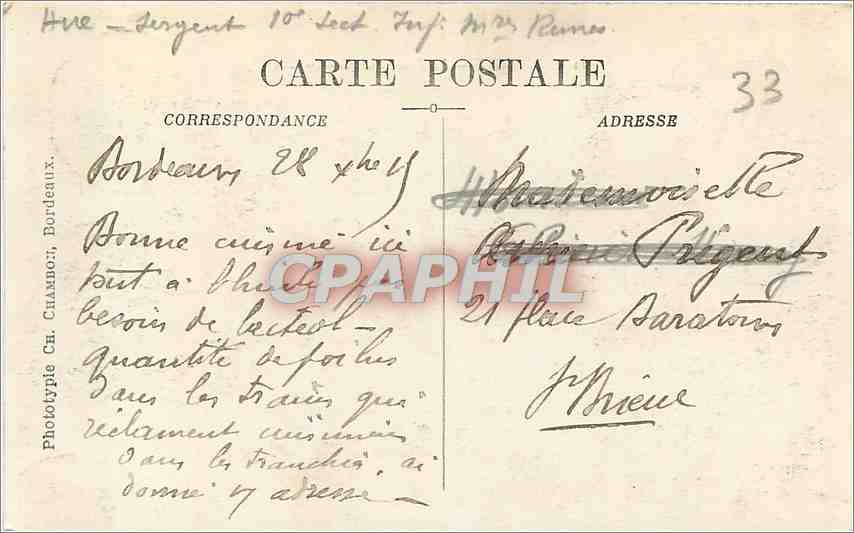 Hue - Sergent 10e Sect. Inf. Mres Rennes
CARTE POSTALE
33
CORRESPONDANCE
ADRESSE
Bordeaux 28 xbre 15
Bonne cuisine ici
tout à l'huile pas
besoin de lactéol -
quantité de poilus
dans les trains qui
réclament cuisinières
dans les tranchées, ai
donné v/ adresse -
Mademoiselle
Prigent
21 place
St Brieuc
Phototypie CH. CHAMBON, Bordeaux.
CPAPHIL